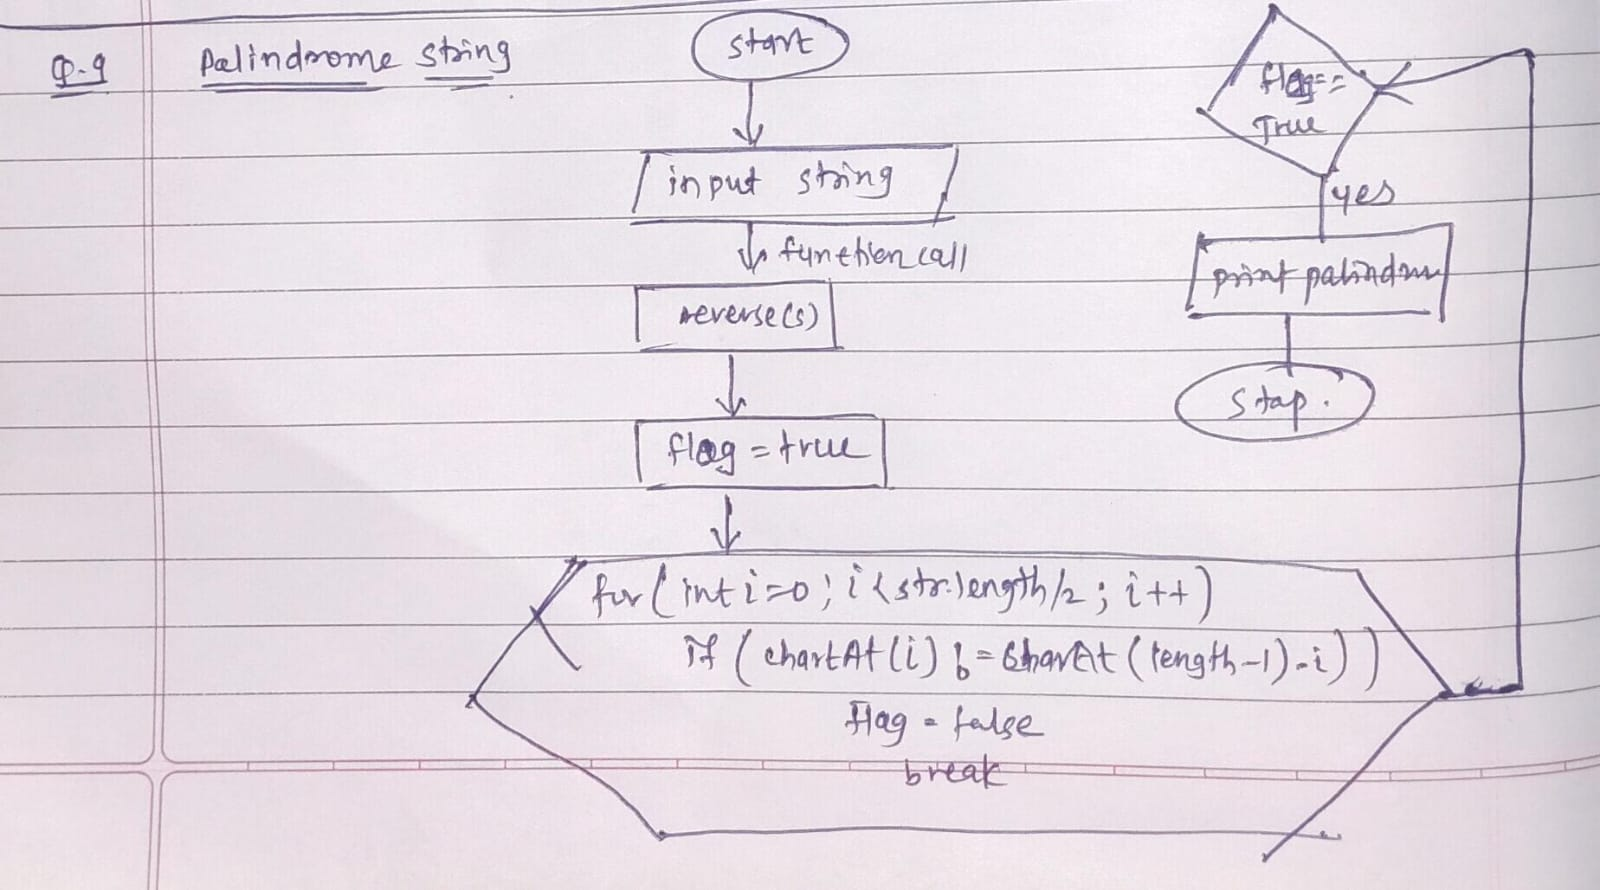 Q.9 Palindrome string
start
input string
function call
reverse(s)
flag = true
for (int i=0; i<str.length/2; i++)
if (chartAt(i) != CharAt (length-1)-i))
flag = false
break
flag==
True
yes
print palindrm
Stop.